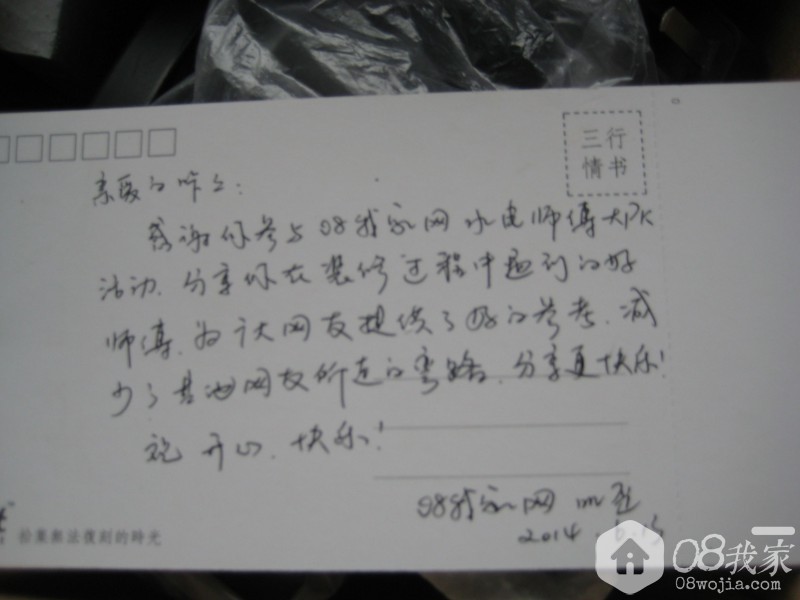 三行
情书
亲爱的咋么：
感谢你参与08我家网水电师傅大PK
活动.分享你在装修过程中遇到的好
师傅.为广大网友提供了好的参考.减
少了其他网友所走的弯路.分享更快乐!
祝 开心.快乐!
08我家网
2014.6.15
给集邮法復刻的時光
08我家
08wojia.com